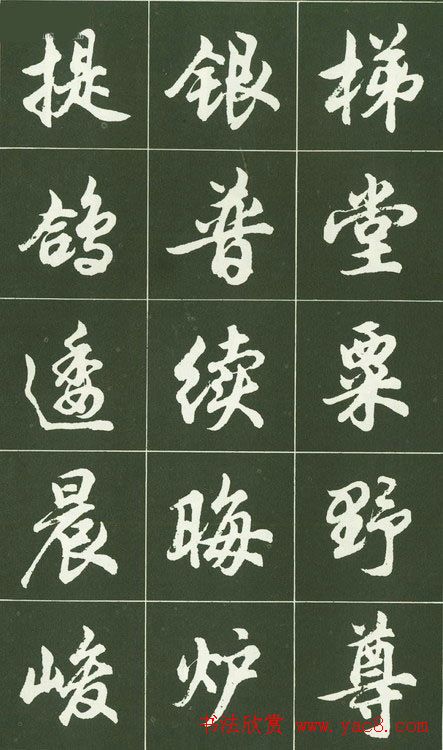 梯堂粟野尊
银普续晦炉
提鸽逶晨峻
书法欣赏 www.yac8.com